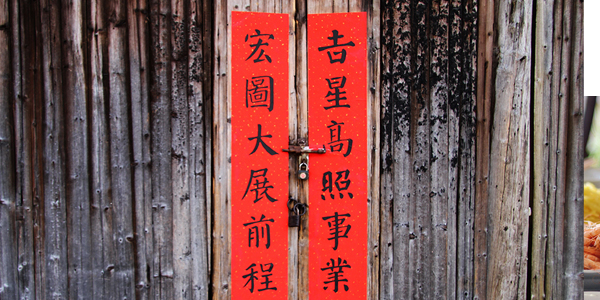 吉星高照事業
宏圖大展前程